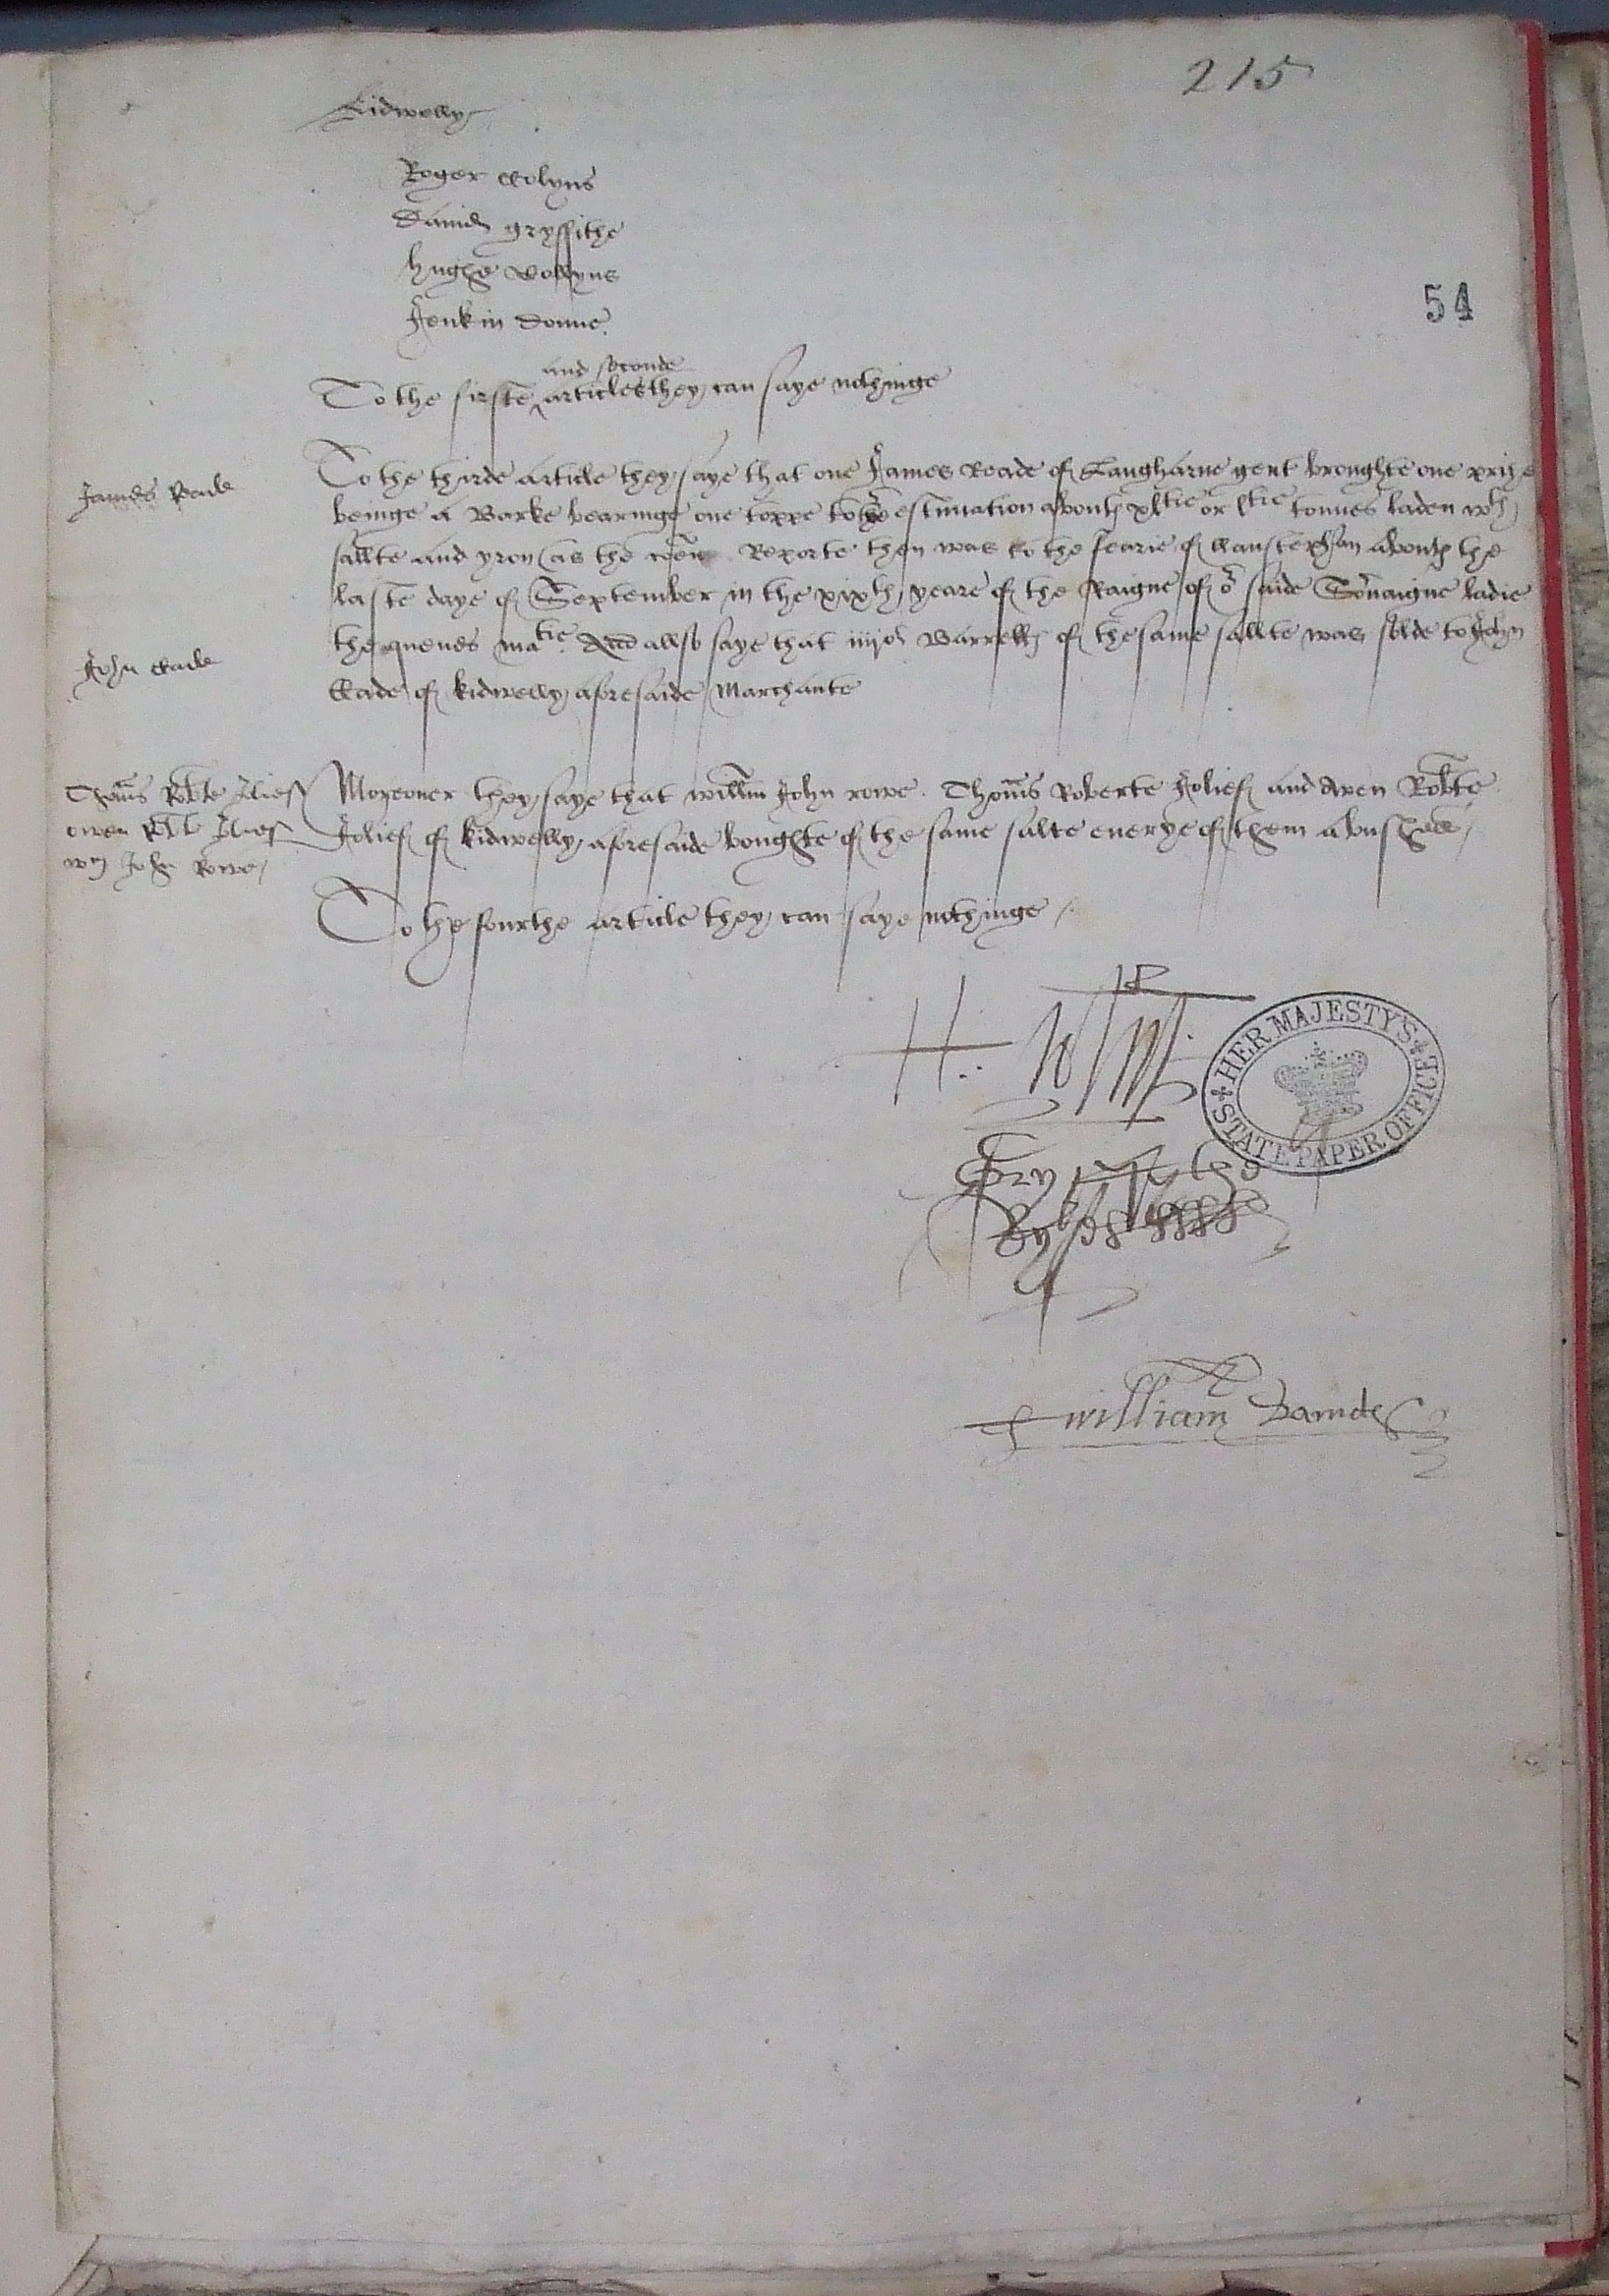 215
Kidwelly
Roger Colyns
Dauid gryffithe
hughe Collyns
Jenkin donne
54
and seconde
To the firste articles they can saye nothinge
James Reade
To the thirde article they saye that one James Reade of Laugharne gent broughte one prize
beinge a Barke bearinge one toppe to estimation aboute xltie or ltie tonnes laden wth
sallte and yron (as the Reporte then was to the fearie of llanstephan aboute the
laste daye of September in the xixth yeare of the Raigne of or saide Soveraigne ladie
the quenes matie. And allso saye that iiijor Barrells of the same sallte was solde to John
John wade
Wade of kidwelly aforesaide Marchante
Thoms Robte Jolief
owen Robt Jolief
wm John Rowe
Moreouer they saye that willm John rowe. Thoms Roberte Jolief and Awen Robte
Jolief of kidwelly aforesaide boughte of the same salte euerye of them a bushell
To the fourthe article they can saye nothinge
HER MAJESTY'S
STATE PAPER OFFICE
william Dauides